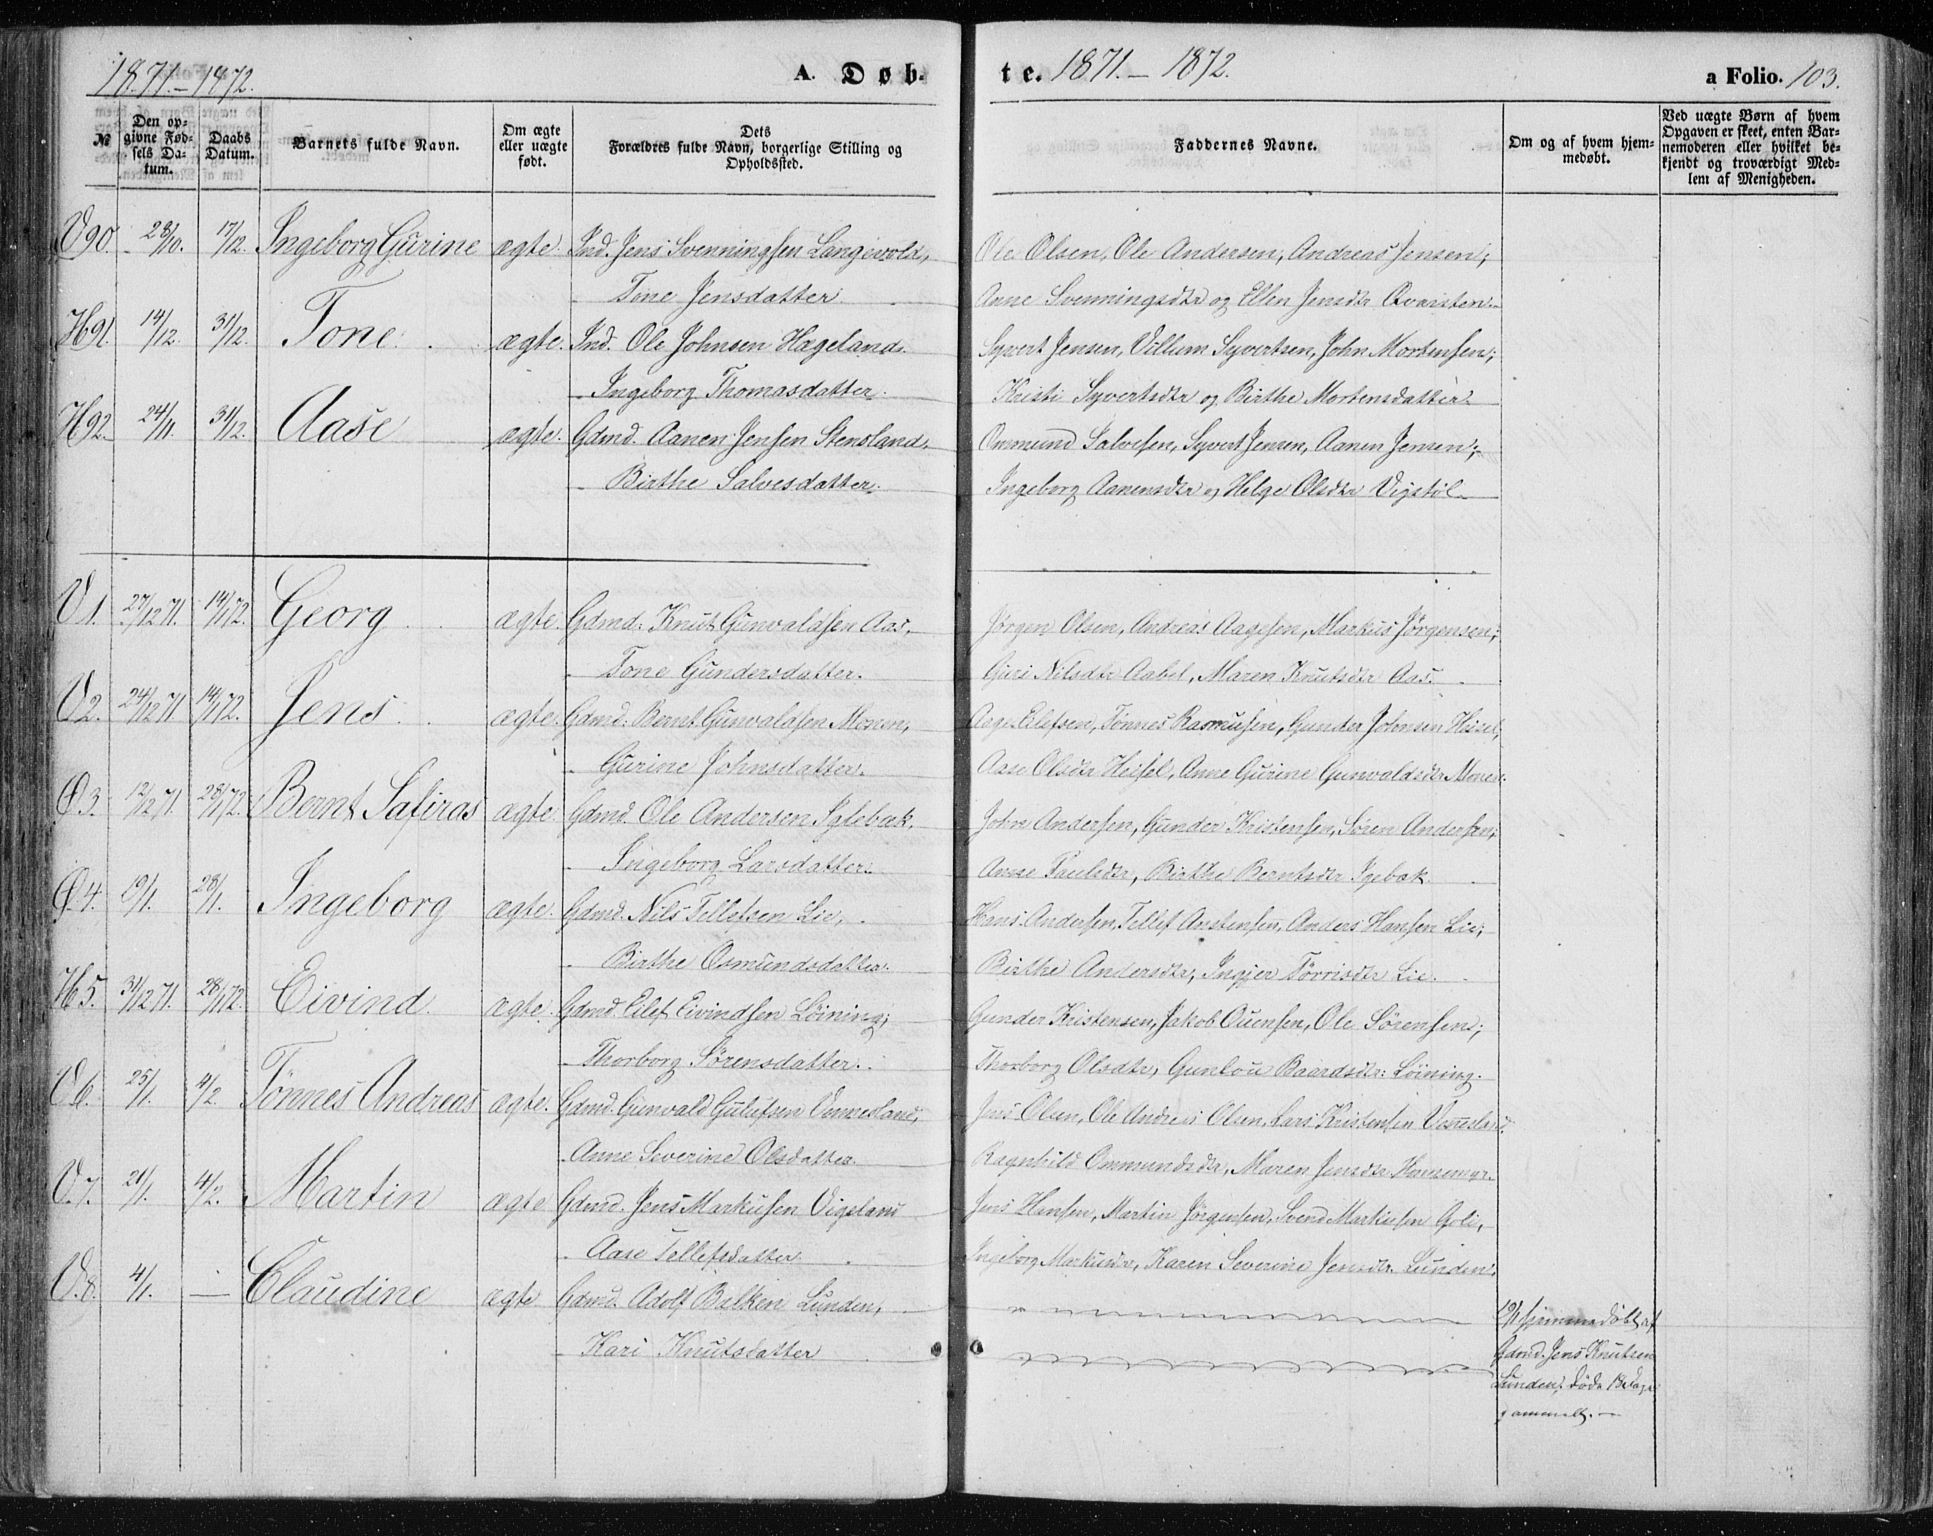 1871.-1872. A. Døb-
No
Den op-
givne Fød-
sels Da-
tum.
Daabs
Datum.
Barnets fulde Navn.
Om ægte
eller uægte
født.
Dets
Forældres fulde Navn, borgerlige Stilling og
Opholdssted.
V90. 28/10. 17/12. Ingeborg Gurine ægte. Ind. Jens Svenningsen Langevold,
Tine Jensdatter.
H91. 14/12. 31/12. Tone. ægte. Ind. Ole Johnsen Hægeland.
Ingeborg Thomasdatter.
H92. 24/11. 31/12. Aase ægte. Gdmd. Aanen Jensen Stensland,
Birthe Salvesdatter.
V1. 27/12 71. 14/1 72. Georg. ægte. Gdmd. Knut Gunvaldsen Aas,
Tone Gundersdatter.
V2. 24/12 71 14/1 72. Jens. ægte. Gdmd. Bernt Gunvaldsen Monen,
Gurine Johnsdatter.
Ø3. 12/12 71. 28/1 72. Bernt Safiras ægte. Gdmd. Ole Andersen
Ingeborg Larsdatter.
Ø4. 19/1. 28/1. Ingeborg ægte. Gdmd. Nils Tellefsen Lie,
Birthe Osmundsdatter.
H5. 31/12 71. 28/1 72. Eivind. ægte. Gdmd. Eilef Eivindsen Løining;
Thorborg Sørensdatter.
V6. 25/1. 4/2. Tønnes Andreas ægte. Gdmd. Gunvald Gulufsen Vennesland,
Anne Severine Olsdatter.
V.7. 21/1. 4/2. Martin ægte Gdmd. Jens Markusen Vigeland
Aase Tellefsdatter.
V.8. 4/1. — Claudine ægte Gdmd. Adolf Balken Lunden,
Kari Knutsdatter
te. 1871.-1872. a Folio. 103.
Faddernes Navne.
Om og af hvem hjem-
medøbt.
Ved uægte Børn af hvem
Opgaven er skeet, enten Bar-
nemoderen eller hvilket be-
kjendt og troværdigt Med-
lem af Menigheden.
Ole Olsen, Ole Andersen, Andreas Jensen;
Anne Svenningsdtr og Ellen Jensdtr Qvarsten.
Syvert Jensen, Villum Syvertsen, John Mortensen;
Kristi Syvertsdtr og Birthe Mortensdatter.
Ommund Salvesen, Syvert Jensen, Aanen Jensen;
Ingeborg Aanensdtr og Helge Olsdtr Vigstøl
Jørgen Olsen, Andreas Aagesen, Markus Jørgensen;
Guri Nilsdtr Aabel, Maren Knutsdtr Aas.
Aage Eilefsen, Tønnes Rasmusen, Gunder Johnsen Heisel,
Aase Olsdtr Heisel, Anne Gurine Gunvaldsdtr Monen.
John Andersen, Gunder Kristensen, Søren Andersen;
Anne Paulsdtr, Birthe Berntsdtr
Hans Andersen, Tellef Anstensen, Anders Hansen Lie;
Birthe Andersdtr, Ingjer Tørrisdtr Lie.
Gunder Kristensen, Jakob Ouensen, Ole Sørensen;
Thorborg Olsdtr, Gunlou Baardsdtr. Løining.
Jens Olsen, Ole Andreas Olsen, Lars Kristensen Vennesland.
Ragnhild Ommundsdtr, Maren Jensdtr
Jens Hansen, Martin Jørgensen, Svend Markusen Goli,
Ingeborg Markusdtr, Karen Severine Jensdtr Lunden.
19/1 hjemmedøbt af
Gdmd. Jens Knutsen
Lunden, døde Dage
gammelt.